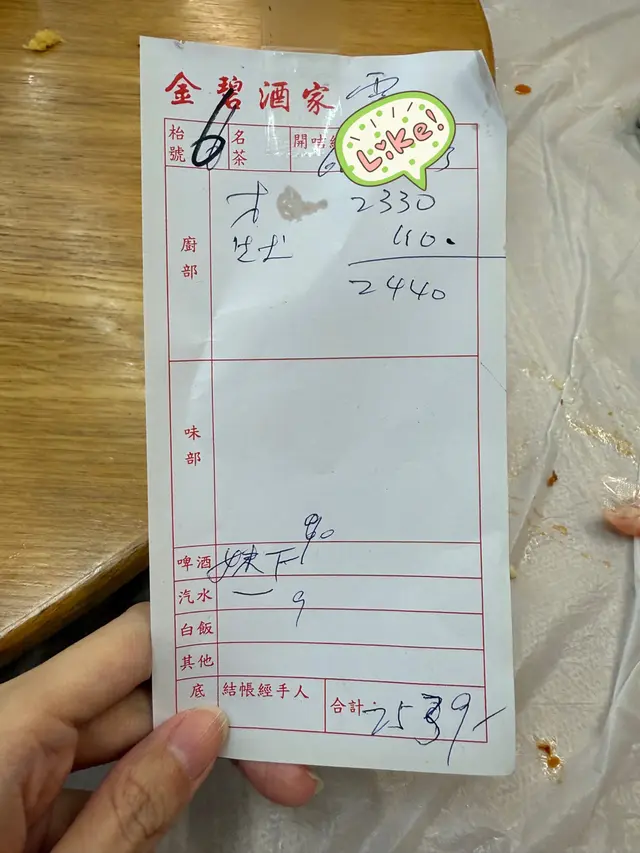 金碧酒家
Like!
枱號 6 名茶 開咭
廚部 2330
110.
2440
味部
90
啤酒
汽水 一 9
白飯
其他
底 結帳經手人 合計: 2539